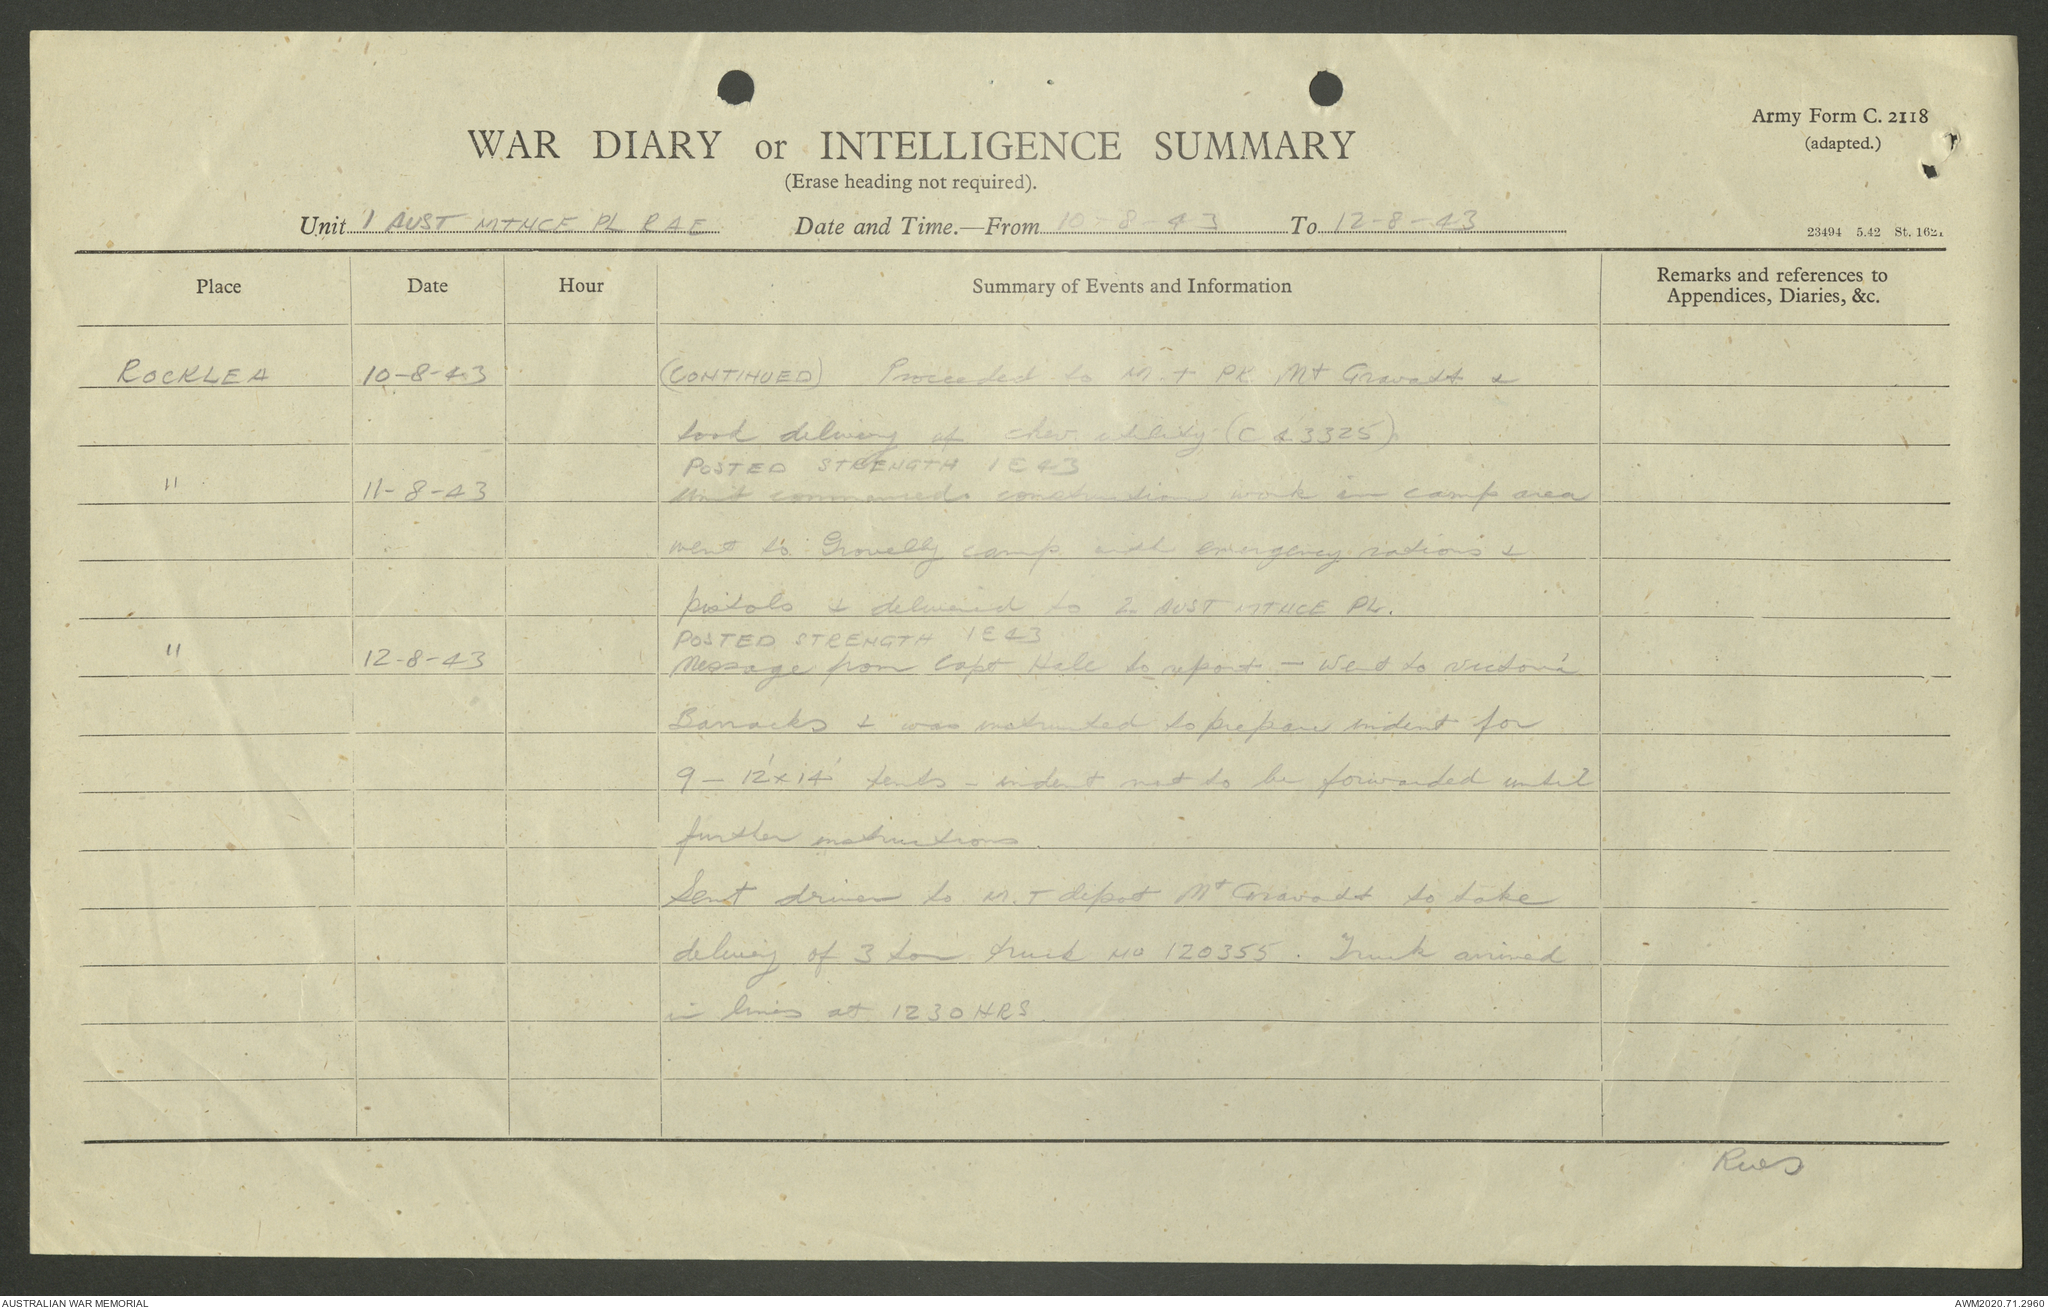 Army Form C. 2118
(adapted.)
WAR DIARY or INTELLIGENCE SUMMARY
(Erase heading not required).
Unit 1 AUST MTNCE PL RAE Date and Time.—From 10-8-43 To 12-8-43
23494 5.42 St. 1621
Place Date Hour Summary of Events and Information Remarks and references to
Appendices, Diaries, &c.
ROCKLEA 10-8-43 (CONTINUED) Proceeded to M.T PK Mt Gravatt &
took delivery of chev. utility (C 43325)
POSTED STRENGTH 1E43
" 11-8-43 Unit commenced construction work in camp area
went to Grovelly camp with emergency rations &
pistols & delivered to 2 AUST MTNCE PL.
POSTED STRENGTH 1E43
" 12-8-43 Message from Capt Hale to report - Went to Victoria
Barracks & was instructed to prepare indent for
9 - 12'x14' tents - indent not to be forwarded until
further instructions.
Sent driver to M.T depot Mt Gravatt to take
delivery of 3 ton truck NO 120355. Truck arrived
in lines at 1230 HRS.
AUSTRALIAN WAR MEMORIAL
AWM2020.71.2960